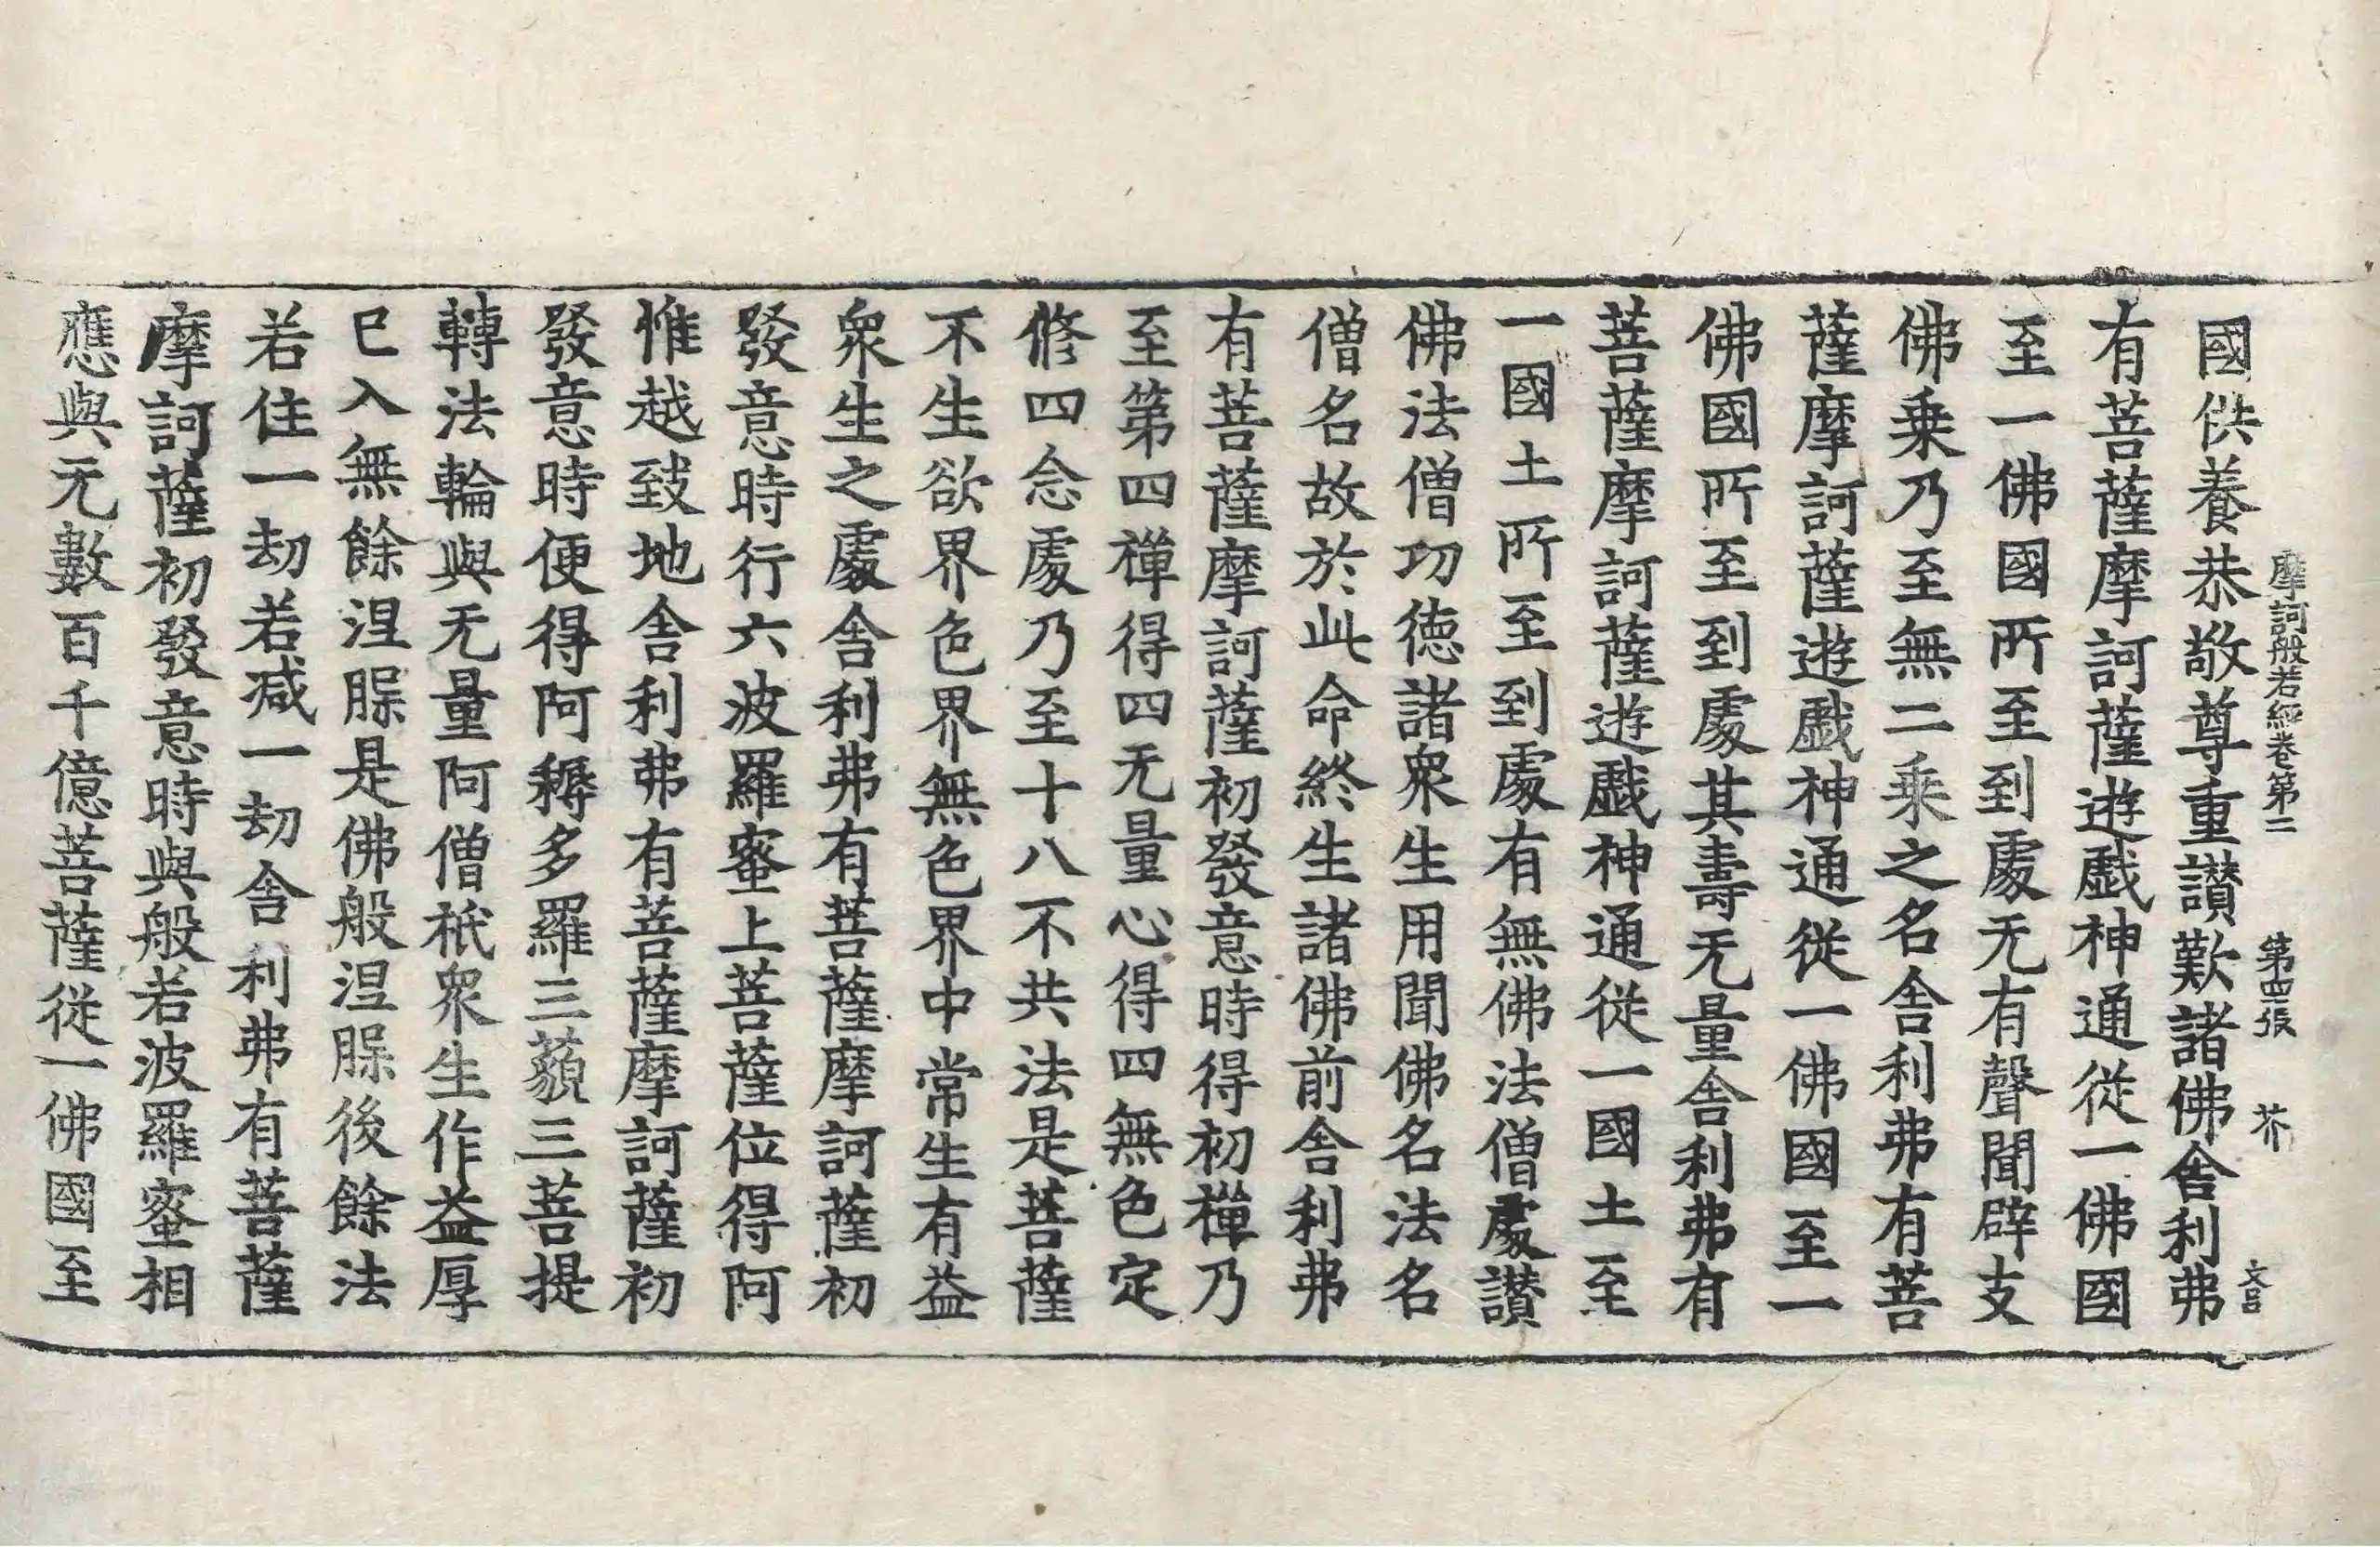 摩訶般若經卷第二 第四張 芥
國供養恭敬尊重讃歎諸佛舎利弗
有菩薩摩訶薩遊戲神通從一佛國
至一佛國所至到處无有聲聞辟支
佛乗乃至無二乗之名舎利弗有菩
薩摩訶薩遊戲神通從一佛國至一
佛國所至到處其壽无量舎利弗有
菩薩摩訶薩遊戲神通從一國土至
一國土所至到處有無佛法僧處讃
佛法僧功徳諸衆生用聞佛名法名
僧名故於此命終生諸佛前舎利弗
有菩薩摩訶薩初發意時得初禪乃
至第四禪得四无量心得四無色定
修四念處乃至十八不共法是菩薩
不生欲界色界無色界中常生有益
衆生之處舎利弗有菩薩摩訶薩初
發意時行六波羅蜜上菩薩位得阿
惟越致地舎利弗有菩薩摩訶薩初
發意時便得阿耨多羅三藐三菩提
轉法輪與无量阿僧祇衆生作益厚
已入無餘涅脲是佛般涅脲後餘法
若住一劫若減一劫舎利弗有菩薩
摩訶薩初發意時與般若波羅蜜相
應與无數百千億菩薩從一佛國至